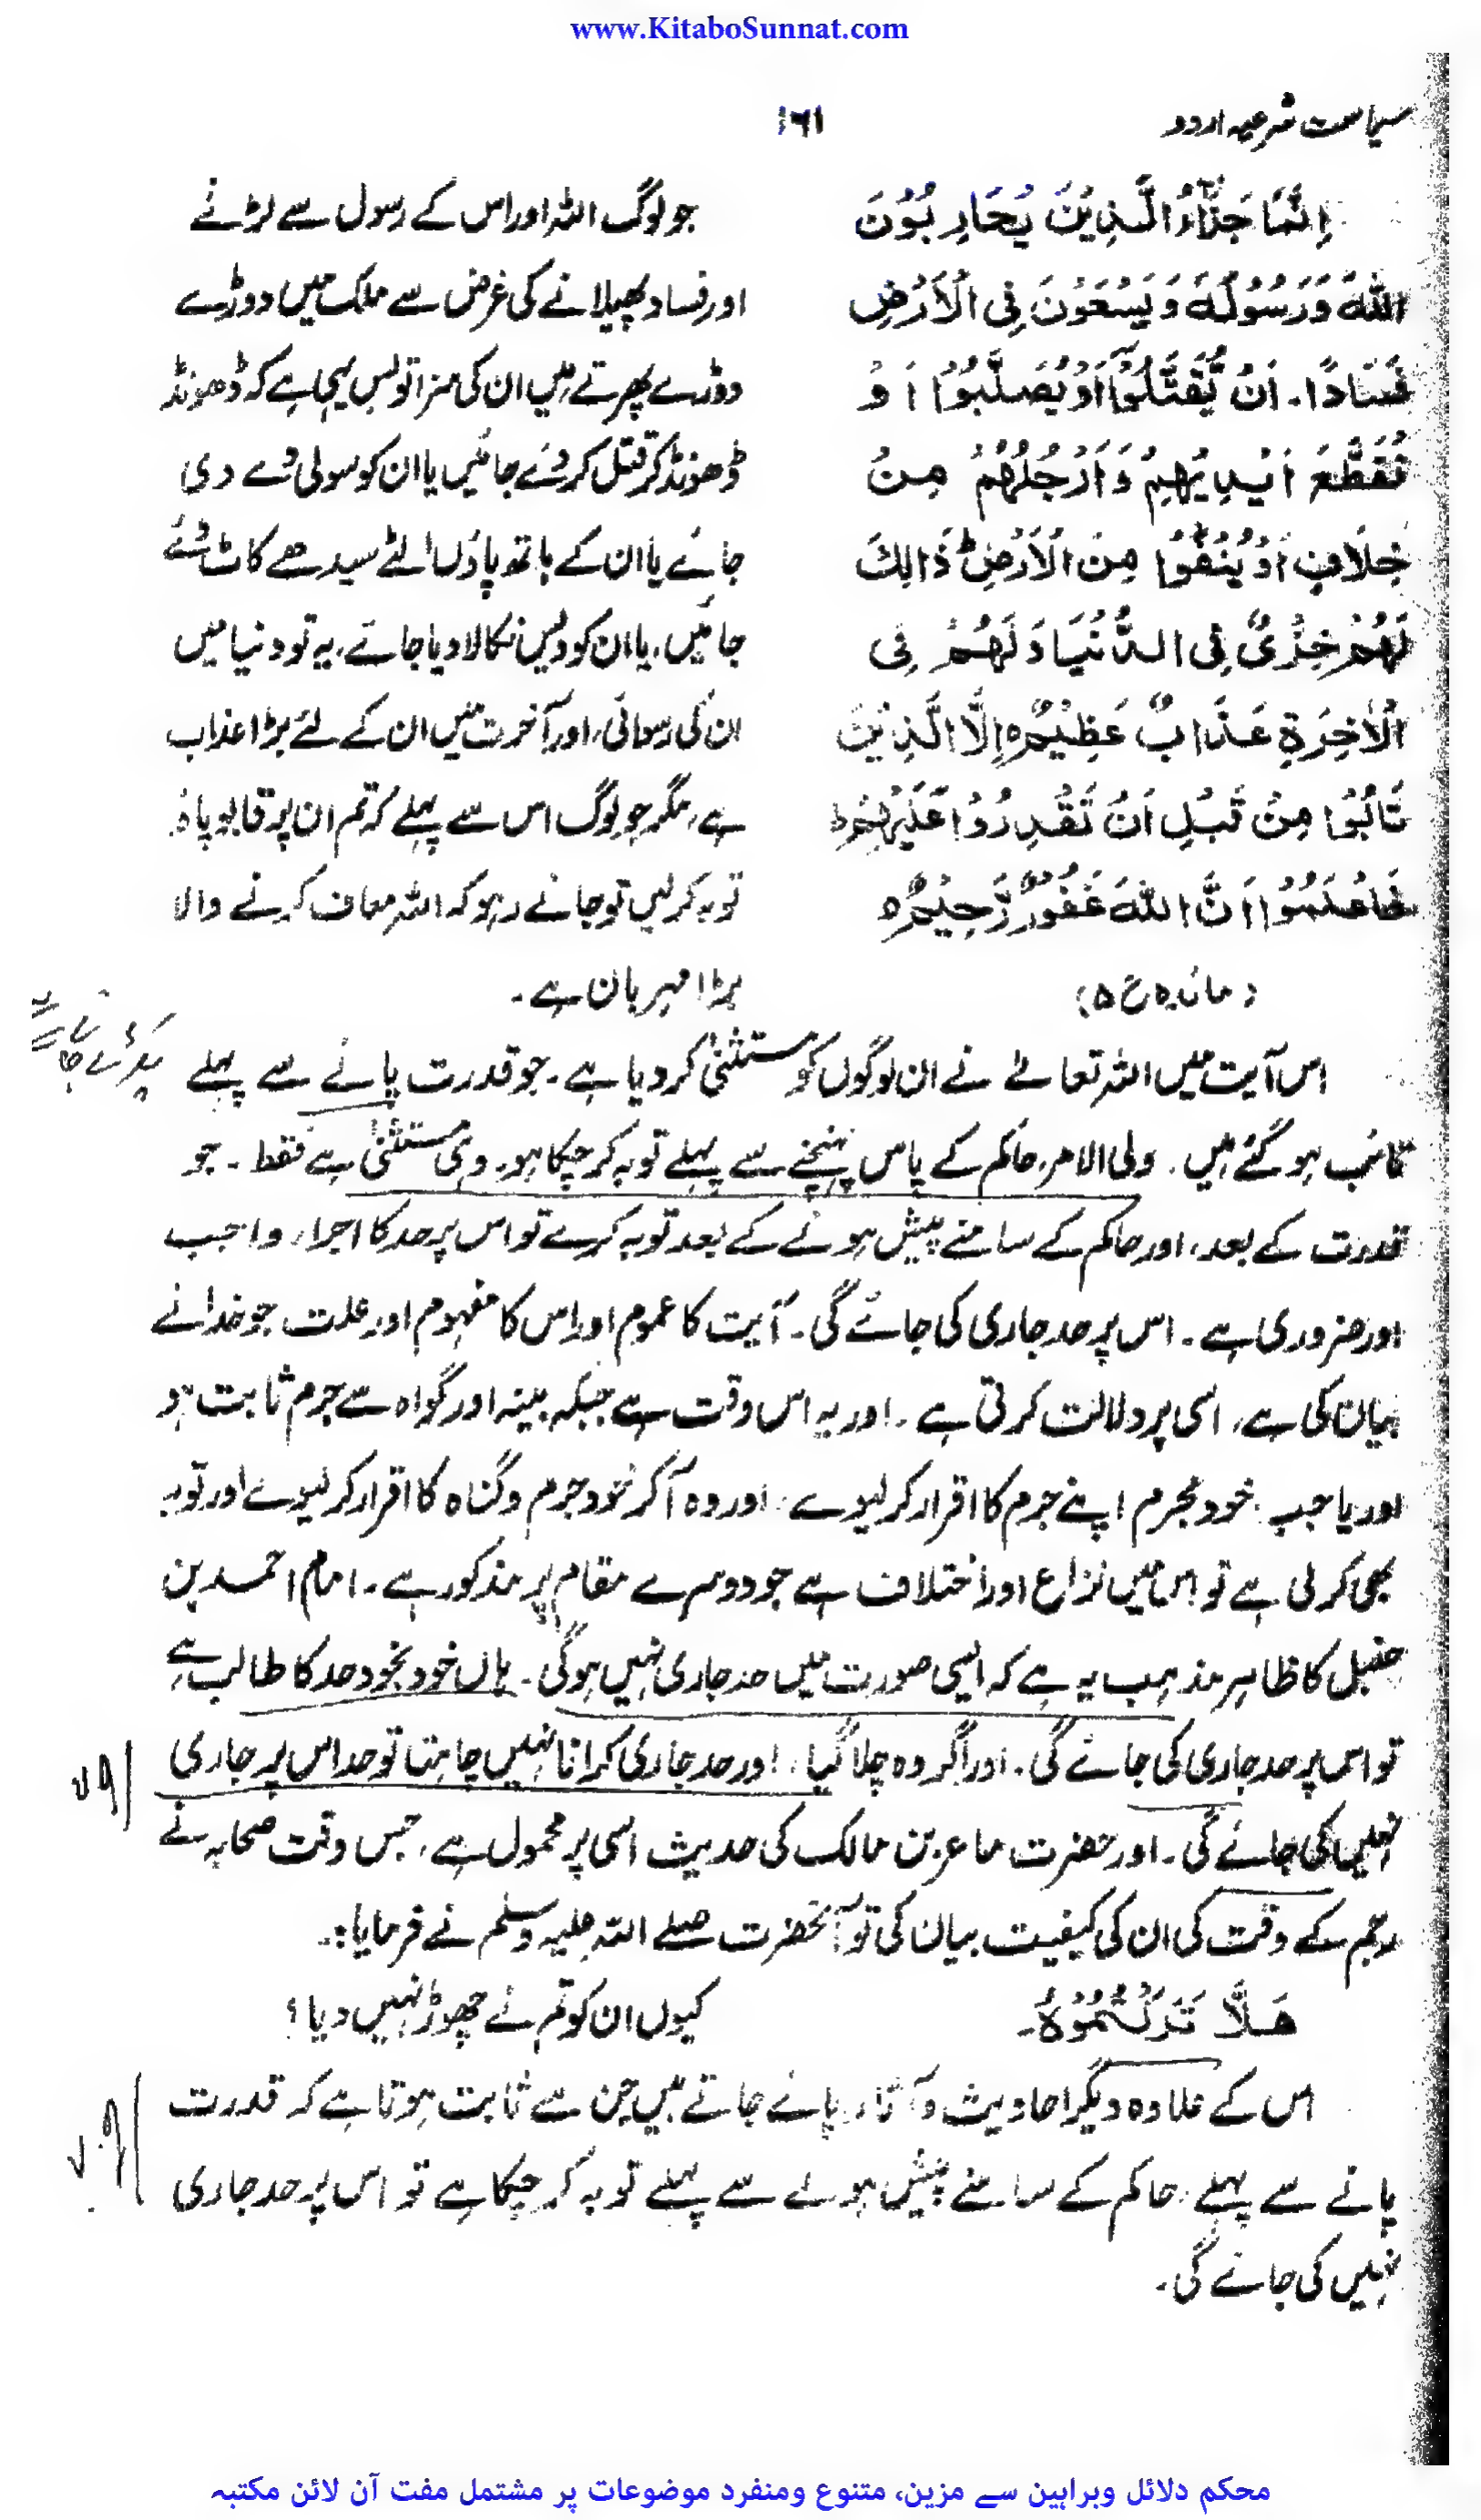 www.KitaboSunnat.com
سیاست شرعیہ اردو
۱۶۱
اِنَّمَا جَزَآءُ الَّذِیْنَ یُحَارِبُوْنَ
اللّٰهَ وَرَسُوْلَهٗ وَیَسْعَوْنَ فِی الْاَرْضِ
فَسَادًا۔ اَنْ یُّقَتَّلُوْٓا اَوْ یُصَلَّبُوْٓا اَوْ
تُقَطَّعَ اَیْدِیْهِمْ وَاَرْجُلُهُمْ مِنْ
خِلَافٍ اَوْ یُنْفَوْا مِنَ الْاَرْضِ ط ذَالِكَ
لَهُمْ خِزْیٌ فِی الدُّنْیَا وَلَهُمْ فِی
الْاٰخِرَةِ عَذَابٌ عَظِیْمٌ ہ اِلَّا الَّذِیْنَ
تَابُوْا مِنْ قَبْلِ اَنْ تَقْدِرُوْا عَلَیْهِمْ ط
فَاعْلَمُوْا اَنَّ اللّٰهَ غَفُوْرٌ رَّحِیْمٌ ہ
(مائدہ ع ۵)
جو لوگ اللہ اور اس کے رسول سے لڑنے
اور فساد پھیلانے کی غرض سے ملک میں دوڑے
دوڑے پھرتے ہیں ان کی سزا تو بس یہی ہے کہ ڈھونڈ
ڈھونڈ کر قتل کر دئے جائیں یا ان کو سولی دے دی
جائے یا ان کے ہاتھ پاؤں الٹے سیدھے کاٹ دئے
جائیں، یا ان کو دیس نکالا دیا جائے، یہ تو دنیا میں
ان کی رسوائی، اور آخرت میں ان کے لئے بڑا عذاب
ہے، مگر جو لوگ اس سے پہلے کہ تم ان پر قابو پاؤ
توبہ کر لیں تو جانے رہو کہ اللہ معاف کرنے والا
بڑا مہربان ہے۔
اس آیت میں اللہ تعالےٰ نے ان لوگوں کو مستثنیٰ کر دیا ہے۔ جو قدرت پانے سے پہلے
تائب ہو گئے ہیں۔ ولی الامر، حاکم کے پاس پہنچنے سے پہلے توبہ کر چکا ہو۔ وہی مستثنیٰ ہے فقط۔ جو
قدرت کے بعد، اور حاکم کے سامنے پیش ہونے کے بعد توبہ کرے تو اس پر حد کا اجراء واجب
اور ضروری ہے۔ اس پر حد جاری کی جائے گی۔ آیت کا عموم اور اس کا مفہوم اور علت جو خدا نے
بیان کی ہے، اسی پر دلالت کرتی ہے۔ اور یہ اس وقت ہے جبکہ بینہ اور گواہ سے جرم ثابت ہو
اور یا جب خود مجرم اپنے جرم کا اقرار کر لیوے، اور وہ آ کر خود جرم و گناہ کا اقرار کر لیوے اور توبہ
بھی کر لی ہے تو اس میں نزاع اور اختلاف ہے جو دوسرے مقام پر مذکور ہے۔ امام احمد بن
حنبل کا ظاہر مذہب یہ ہے کہ ایسی صورت میں حد جاری نہیں ہو گی۔ ہاں خود بخود حد کا طالب ہے
تو اس پر حد جاری کی جائے گی۔ اور اگر وہ چلا گیا، اور حد جاری کرانا نہیں چاہتا تو حد اس پر جاری
نہیں کی جائے گی۔ اور حضرت ماعز بن مالک کی حدیث اسی پر محمول ہے، جس وقت صحابہ نے
رجم کے وقت کی ان کی کیفیت بیان کی تو آنحضرت صلے اللہ علیہ وسلم نے فرمایا:۔
هَلَّا تَرَكْتُمُوْهُ۔
کیوں ان کو تم نے چھوڑ نہیں دیا؟
اس کے علاوہ دیگر احادیث و آثار پائے جاتے ہیں جن سے ثابت ہوتا ہے کہ قدرت
پانے سے پہلے، حاکم کے سامنے پیش ہونے سے پہلے توبہ کر چکا ہے تو اس پر حد جاری
نہیں کی جائے گی۔
محکم دلائل وبراہین سے مزین، متنوع ومنفرد موضوعات پر مشتمل مفت آن لائن مکتبہ